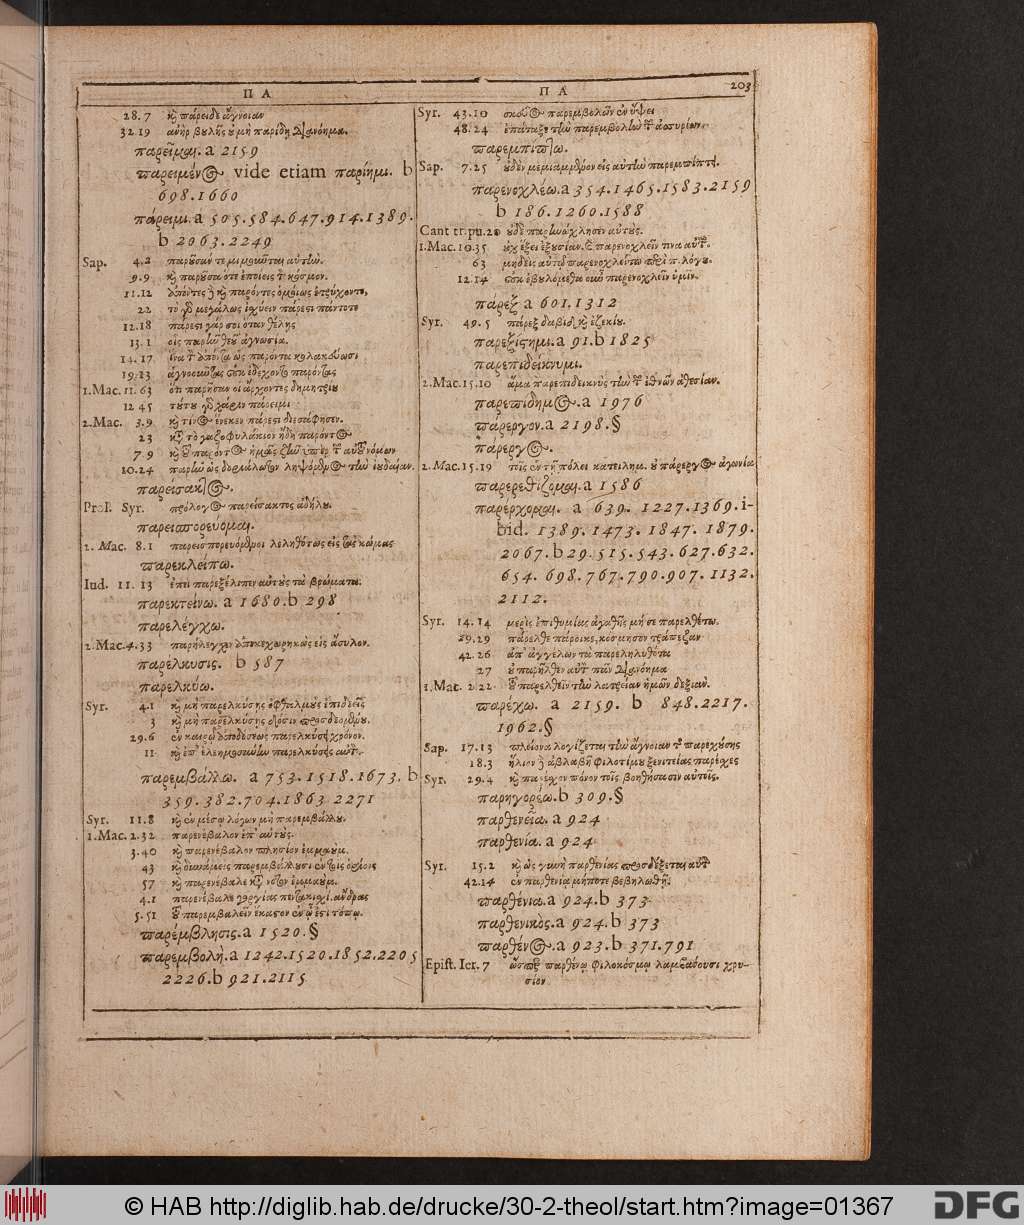 Π Α
Π Α
203
28.7 καὶ πάρειδε ἄγνοιαν
32.19 ἀνὴρ βουλῆς οὐ μὴ παρίδῃ διανόημα.
παρεῖμαι. a 2159
παρειμένος vide etiam παρίημι. b
698.1660
πάρειμι. a 505.584.647.914.1389.
b 2063.2249
Sap. 4.2 παροῦσάν τε μιμοῦνται αὐτὴν.
9.9 καὶ παροῦσα ὅτε ἐποίεις τὸν κόσμον.
11.12 ἀπόντες δὲ καὶ παρόντες ὁμοίως ἐτρύχοντο,
22 τὸ γὰρ μεγάλως ἰσχύειν πάρεστι πάντοτε
12.18 πάρεστι γάρ σοι ὅταν θέλῃς
13.1 οἷς παρῆν θεοῦ ἀγνωσία.
14.17 ἵνα τὸν ἀπόντα ὡς παρόντα κολακεύωσι
19.13 ἀγνοοῦντας οὐκ ἐδέχοντο παρόντας
1.Mac. 11.63 ὅτι παρῆσαν οἱ ἄρχοντες δημητρίου
12 45 τούτου γὰρ χάριν πάρειμι
2.Mac. 3.9 καὶ τίνος ἕνεκεν πάρεστι διεσάφησεν.
23 κατὰ τὸ γαζοφυλάκιον ἤδη παρόντος
7 9 καὶ τοῦ παρόντος ἡμᾶς ζῆν ὑπὲρ τῶν αὐτοῦ νόμων
10.24 παρῆν ὡς δοριάλωτον ληψόμενος τὴν ἰουδαίαν.
παρείσακτος.
Prol. Syr. πρόλογος παρείσακτος ἀδήλου.
παρεισπορεύομαι.
2. Mac. 8.1 παρεισπορευόμενοι λεληθότως εἰς τὰς κώμας
παρεκλείπω.
Iud. 11. 13 ἐπεὶ παρεξέλιπεν αὐτοὺς τὰ βρώματα.
παρεκτείνω. a 1680.b 298
παρελέγχω.
2.Mac.4.33 παρήλεγχεν ἀποκεχωρηκὼς εἰς ἄσυλον.
παρέλκυσις. b 587
παρελκύω.
Syr. 4.1 καὶ μὴ παρελκύσῃς ὀφθαλμοὺς ἐπιδεεῖς
3 καὶ μὴ παρελκύσῃς δόσιν προσδεομένου.
29.6 ἐν καιρῷ ἀποδόσεως παρελκύσει χρόνον.
11 καὶ ἐπ' ἐλεημοσύνην παρελκύσῃς αὐτόν.
παρεμβάλλω. a 753.1518.1673. b
359.382.704.1863 2271
Syr. 11.8 καὶ ἐν μέσῳ λόγων μὴ παρεμβάλλου.
1.Mac. 2.32 παρενέβαλον ἐπ' αὐτούς.
3.40 καὶ παρενέβαλον πλησίον ἐμμαούμ.
43 καὶ δυνάμεις παρεμβάλλουσι ἐν τοῖς ὁρίοις
57 καὶ παρενέβαλε κατὰ νότον ἐμμαούμ.
4.1 παρενέβαλε γοργίας πεντακισχι. ἄνδρας
5.51 τοῦ παρεμβαλεῖν ἕκαστον ἐν ᾧ ἐστι τόπῳ.
παρέμβλησις. a 1520.§
παρεμβολὴ. a 1242.1520.1852.2205
2226.b 921.2115
Syr. 43.10 σκεῦος παρεμβολῶν ἐν ὕψει
48.24 ἐπάταξε τὴν παρεμβολὴν τῶν ἀσσυρίων.
παρεμπίπτω.
Sap. 7.25 οὐδὲν μεμιαμμένον εἰς αὐτὴν παρεμπίπτει.
παρενοχλέω. a 354.1465.1583.2159
b 186.1260.1588
Cant tr. pu.20 οὐδὲ παρηνώχλησεν αὐτούς.
1.Mac. 10.35 οὐχ ἕξει ἐξουσίαν. τοῦ παρενοχλεῖν τινα αὐτῶν.
63 μηδεὶς αὐτῷ παρενοχλείτω περὶ π. λόγου.
12.14 οὐκ ἐβουλόμεθα οὖν παρενοχλεῖν ὑμῖν.
παρὲξ a 601.1312
Syr. 49.5 πάρεξ δαβὶδ, καὶ ἐζεκίου.
παρεξίστημι. a 91.b 1825
παρεπιδείκνυμι.
2.Mac.15.10 ἅμα παρεπιδεικνὺς τὴν τῶν ἐθνῶν ἀθεσίαν.
παρεπίδημος. a 1976
πάρεργον. a 2198.§
πάρεργος.
2.Mac.15.19 τοῖς ἐν τῇ πόλει κατειλημ. οὐ πάρεργος ἀγωνία
παρερεθίζομαι. a 1586
παρέρχομαι. a 639. 1227.1369.i-
bid. 1389.1473.1847.1879.
2067.b 29.515.543.627.632.
654. 698.767.790.907.1132.
2112.
Syr. 14.14 μερὶς ἐπιθυμίας ἀγαθῆς μή σε παρελθέτω.
29.29 πάρελθε πάροικε, κόσμησον τράπεζαν
42.26 ἀπ' ἀγγέλων τὰ παρεληλυθότα
27 οὐ παρῆλθεν αὐτὸν πᾶν διανόημα
1.Mac. 2.22 τοῦ παρελθεῖν τὴν λατρείαν ἡμῶν δεξιάν.
παρέχω. a 2159. b 848.2217.
1962.§
Sap. 17.13 πλείονα λογίζεται τὴν ἄγνοιαν τῆς παρεχούσης
18.3 ἥλιον δὲ ἀβλαβῆ φιλοτίμου ξενιτείας παρέσχες
Syr. 29.4 καὶ παρέσχον πόνον τοῖς βοηθήσασιν αὐτοῖς.
παρηγορέω. b 309.§
παρθενεία. a 924
παρθενία. a 924
Syr. 15.2 καὶ ὡς γυνὴ παρθενίας προσδέξεται αὐτόν
42.14 ἐν παρθενίᾳ μήποτε βεβηλωθῇ.
παρθένια. a 924.b 373
παρθενικὸς. a 924.b 373
παρθένος. a 923.b 371.791
Epist. Ier. 7 ὥσπερ παρθένῳ φιλοκόσμῳ λαμβάνουσι χρυ-
σίον
© HAB http://diglib.hab.de/drucke/30-2-theol/start.htm?image=01367
DFG